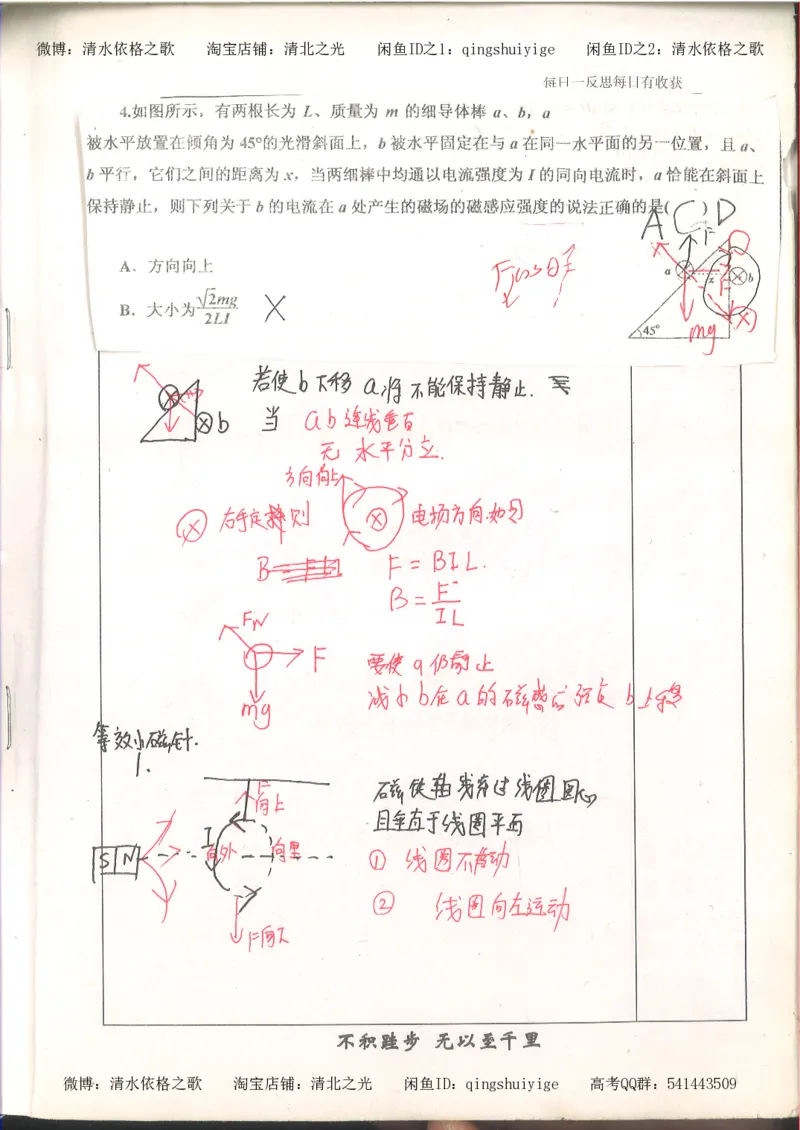 微博：清水依格之歌 淘宝店铺：清北之光 闲鱼ID之1：qingshuiyige 闲鱼ID之2：清水依格之歌
每日一反思每日有收获
4.如图所示，有两根长为 L、质量为 m 的细导体棒 a、b，a
被水平放置在倾角为 45°的光滑斜面上，b 被水平固定在与 a 在同一水平面的另一位置，且 a、
b 平行，它们之间的距离为 x，当两细棒中均通以电流强度为 I 的同向电流时，a 恰能在斜面上
保持静止，则下列关于 b 的电流在 a 处产生的磁场的磁感应强度的说法正确的是( )
ACD
A．方向向上
B．大小为√2mg/2LI ×
a x b
F
mg
45°
若使b下移 a将不能保持静止.
b 当 ab连线垂直
无 水平分立.
方向向上
右手定则 电场方向.如图
F=BIL.
B=F/IL
FN
F
mg
要使a仍静止
减小b在a的磁感应强度 b上移
等效小磁针.
1.
F向上
I
S N 向外 向里
F向下
磁铁轴线穿过线圈圆心
且垂直于线圈平面
① 线圈不转动
② 线圈向左运动
不积跬步 无以至千里
微博：清水依格之歌 淘宝店铺：清北之光 闲鱼ID：qingshuiyige 高考QQ群：541443509